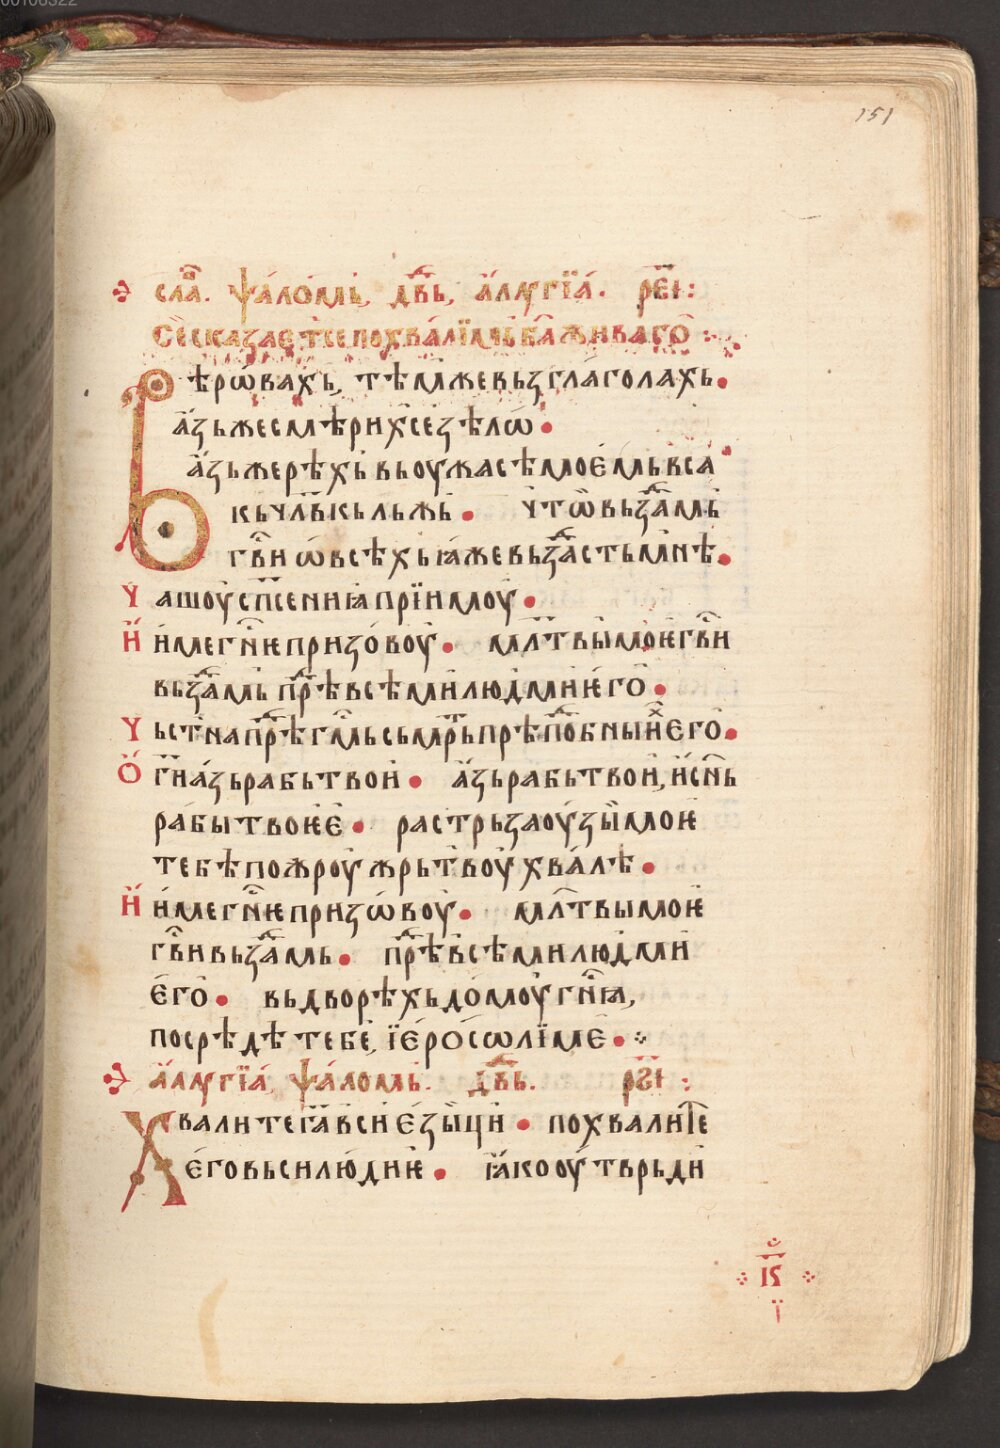 151
сла҃. ѱа́ломь, дв҃ѣ, а҆лугїа́. ре҃і :
Се́ сказае҆т се похва́лїмь ба҃ живаго ⁘
Вѣрѡ́вахь, тѣмже вьзглаголахь.
а҆зь же смѣрих се зѣлѡ̀.
а҆зь же рѣхь вь оужасѣ мое҆мь вса
кь чл҃вкь льжь. чтѡ̀ вьзда҃мь
гв҃и ѡ҆ всѣхь ꙗ҆же вьзда҃сть мнѣ.
Чашоу̀ сп҃сенина прїимоу.
И҆ и҆ме гн҃ѥ призо́воу. мл҃твы моѥ гв҃и
вьзда҃мь прѣ҃ всѣми людми ѥ҆го̀.
Чьстна прѣ҃ гм҃ь сьмрть прѣпо҃бных его̀.
Ѽ гн҃и а҆зь рабь твои. а҆зь рабь твои, и҆ сн҃ь
рабы твоѥ е҆. растрьза оу̀зы моѥ
тебѣ пожроу жрьтвоу хва́лѣ.
И҆ и҆ме гн҃ѥ призѡ́воу. мл҃твы моѥ
гв҃и вьзда҃мь. прѣ҃ всѣми людми
е҆го̀. вь дворѣхь до́моу гн҃ꙗ,
посрѣдѣ тебе, ї҆е҆ро́сѡлїме. ⁘
а҆лугїа́, ѱа́ломь. дв҃ѣ. рѕ҃і :
Хвалите га҃ вси е҆зы̀ци. похвалите
е҆го вьси лю́диѥ. ꙗ҆ко оу̀тврьди
іѕ҃
ї